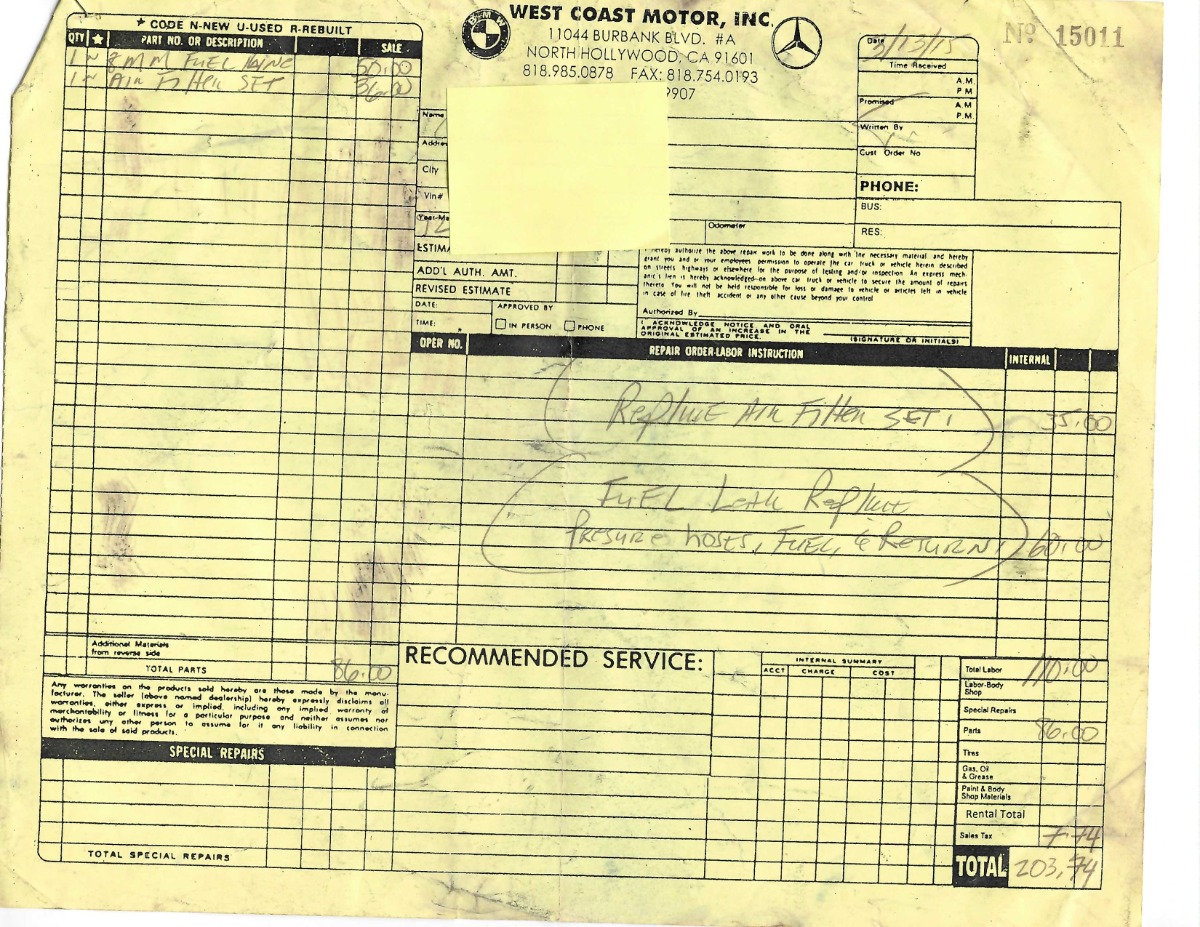 * CODE N-NEW U-USED R-REBUILT
QTY ★ PART NO. OR DESCRIPTION SALE
1 N 8MM FUEL 50.00
1 N Air Filter SET 36.00
Additional Materials
from reverse side
TOTAL PARTS 86.00
Any warranties on the products sold hereby are those made by the manu-
facturer. The seller (above named dealership) hereby expressly disclaims all
warranties, either express or implied, including any implied warranty of
merchantability or fitness for a particular purpose and neither assumes nor
authorizes any other person to assume for it any liability in connection
with the sale of said products.
SPECIAL REPAIRS
TOTAL SPECIAL REPAIRS
BMW
WEST COAST MOTOR, INC.
11044 BURBANK BLVD. #A
NORTH HOLLYWOOD, CA 91601
818.985.0878 FAX: 818.754.0193
9907
Name
Addre
City
Vin#
Year-Ma
Odometer
ESTIMA
ADD'L AUTH. AMT.
REVISED ESTIMATE
DATE:
TIME:
APPROVED BY
IN PERSON PHONE
Nº 15011
Date /13/15
Time Received
A.M.
P.M.
Promised
A.M.
P.M.
Written By
Cust Order No
PHONE:
BUS:
RES:
I hereby authorize the above repair work to be done along with the necessary material, and hereby
grant you and/or your employees permission to operate the car truck or vehicle herein described
on streets highways or elsewhere for the purpose of testing and/or inspection. An express mech-
anic's lien is hereby acknowledged on above car truck or vehicle to secure the amount of repairs
thereto. You will not be held responsible for loss or damage to vehicle or articles left in vehicle
in case of fire theft accident or any other cause beyond your control
Authorized By
I ACKNOWLEDGE NOTICE AND ORAL
APPROVAL OF AN INCREASE IN THE
ORIGINAL ESTIMATED PRICE.
(SIGNATURE OR INITIALS)
OPER NO. REPAIR ORDER-LABOR INSTRUCTION INTERNAL
Replace Air Filter SET. 35.00
FUEL Leak Replace
Presure hoses, Fuel, & Return. 60.00
RECOMMENDED SERVICE:
INTERNAL SUMMARY
ACCT CHARGE COST
Total Labor 110.00
Labor-Body
Shop
Special Repairs
Parts 86.00
Tires
Gas, Oil
& Grease
Paint & Body
Shop Materials
Rental Total
Sales Tax 7.74
TOTAL 203.74